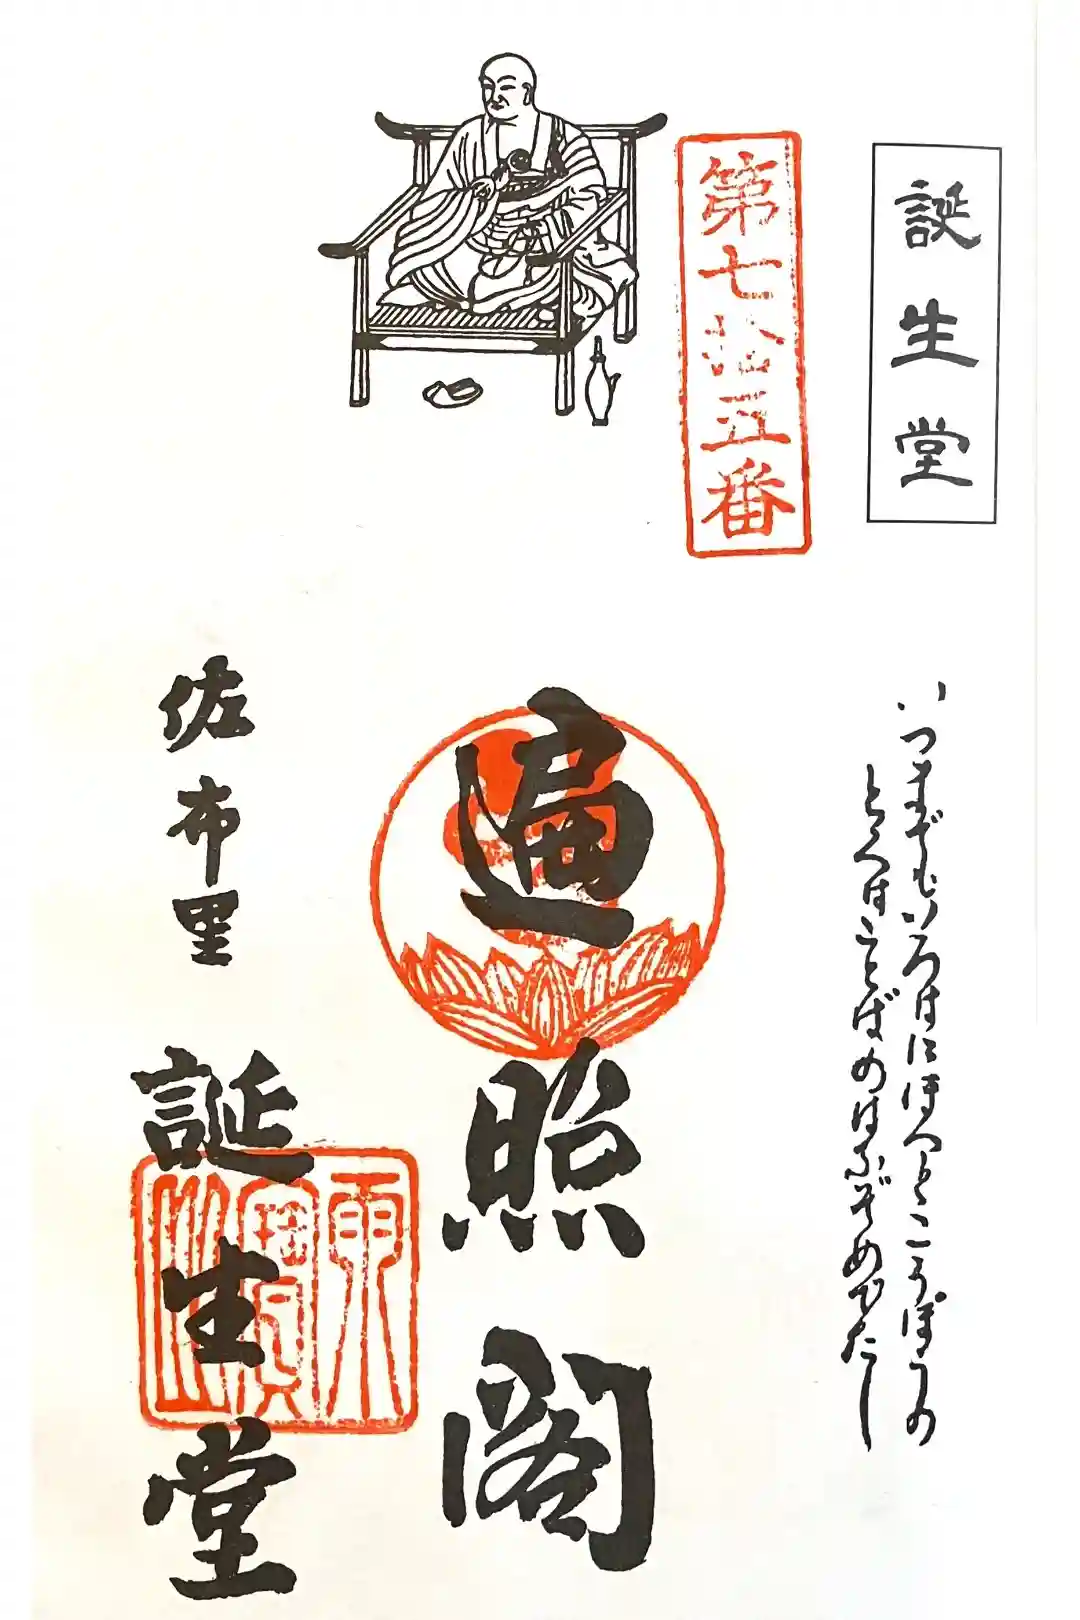 誕生堂
第七拾五番
いつまでもいろはにほへとこうぼうの
とくはことばのはなぞめでたし
遍照閣
佐布里
誕生堂
雨寶山